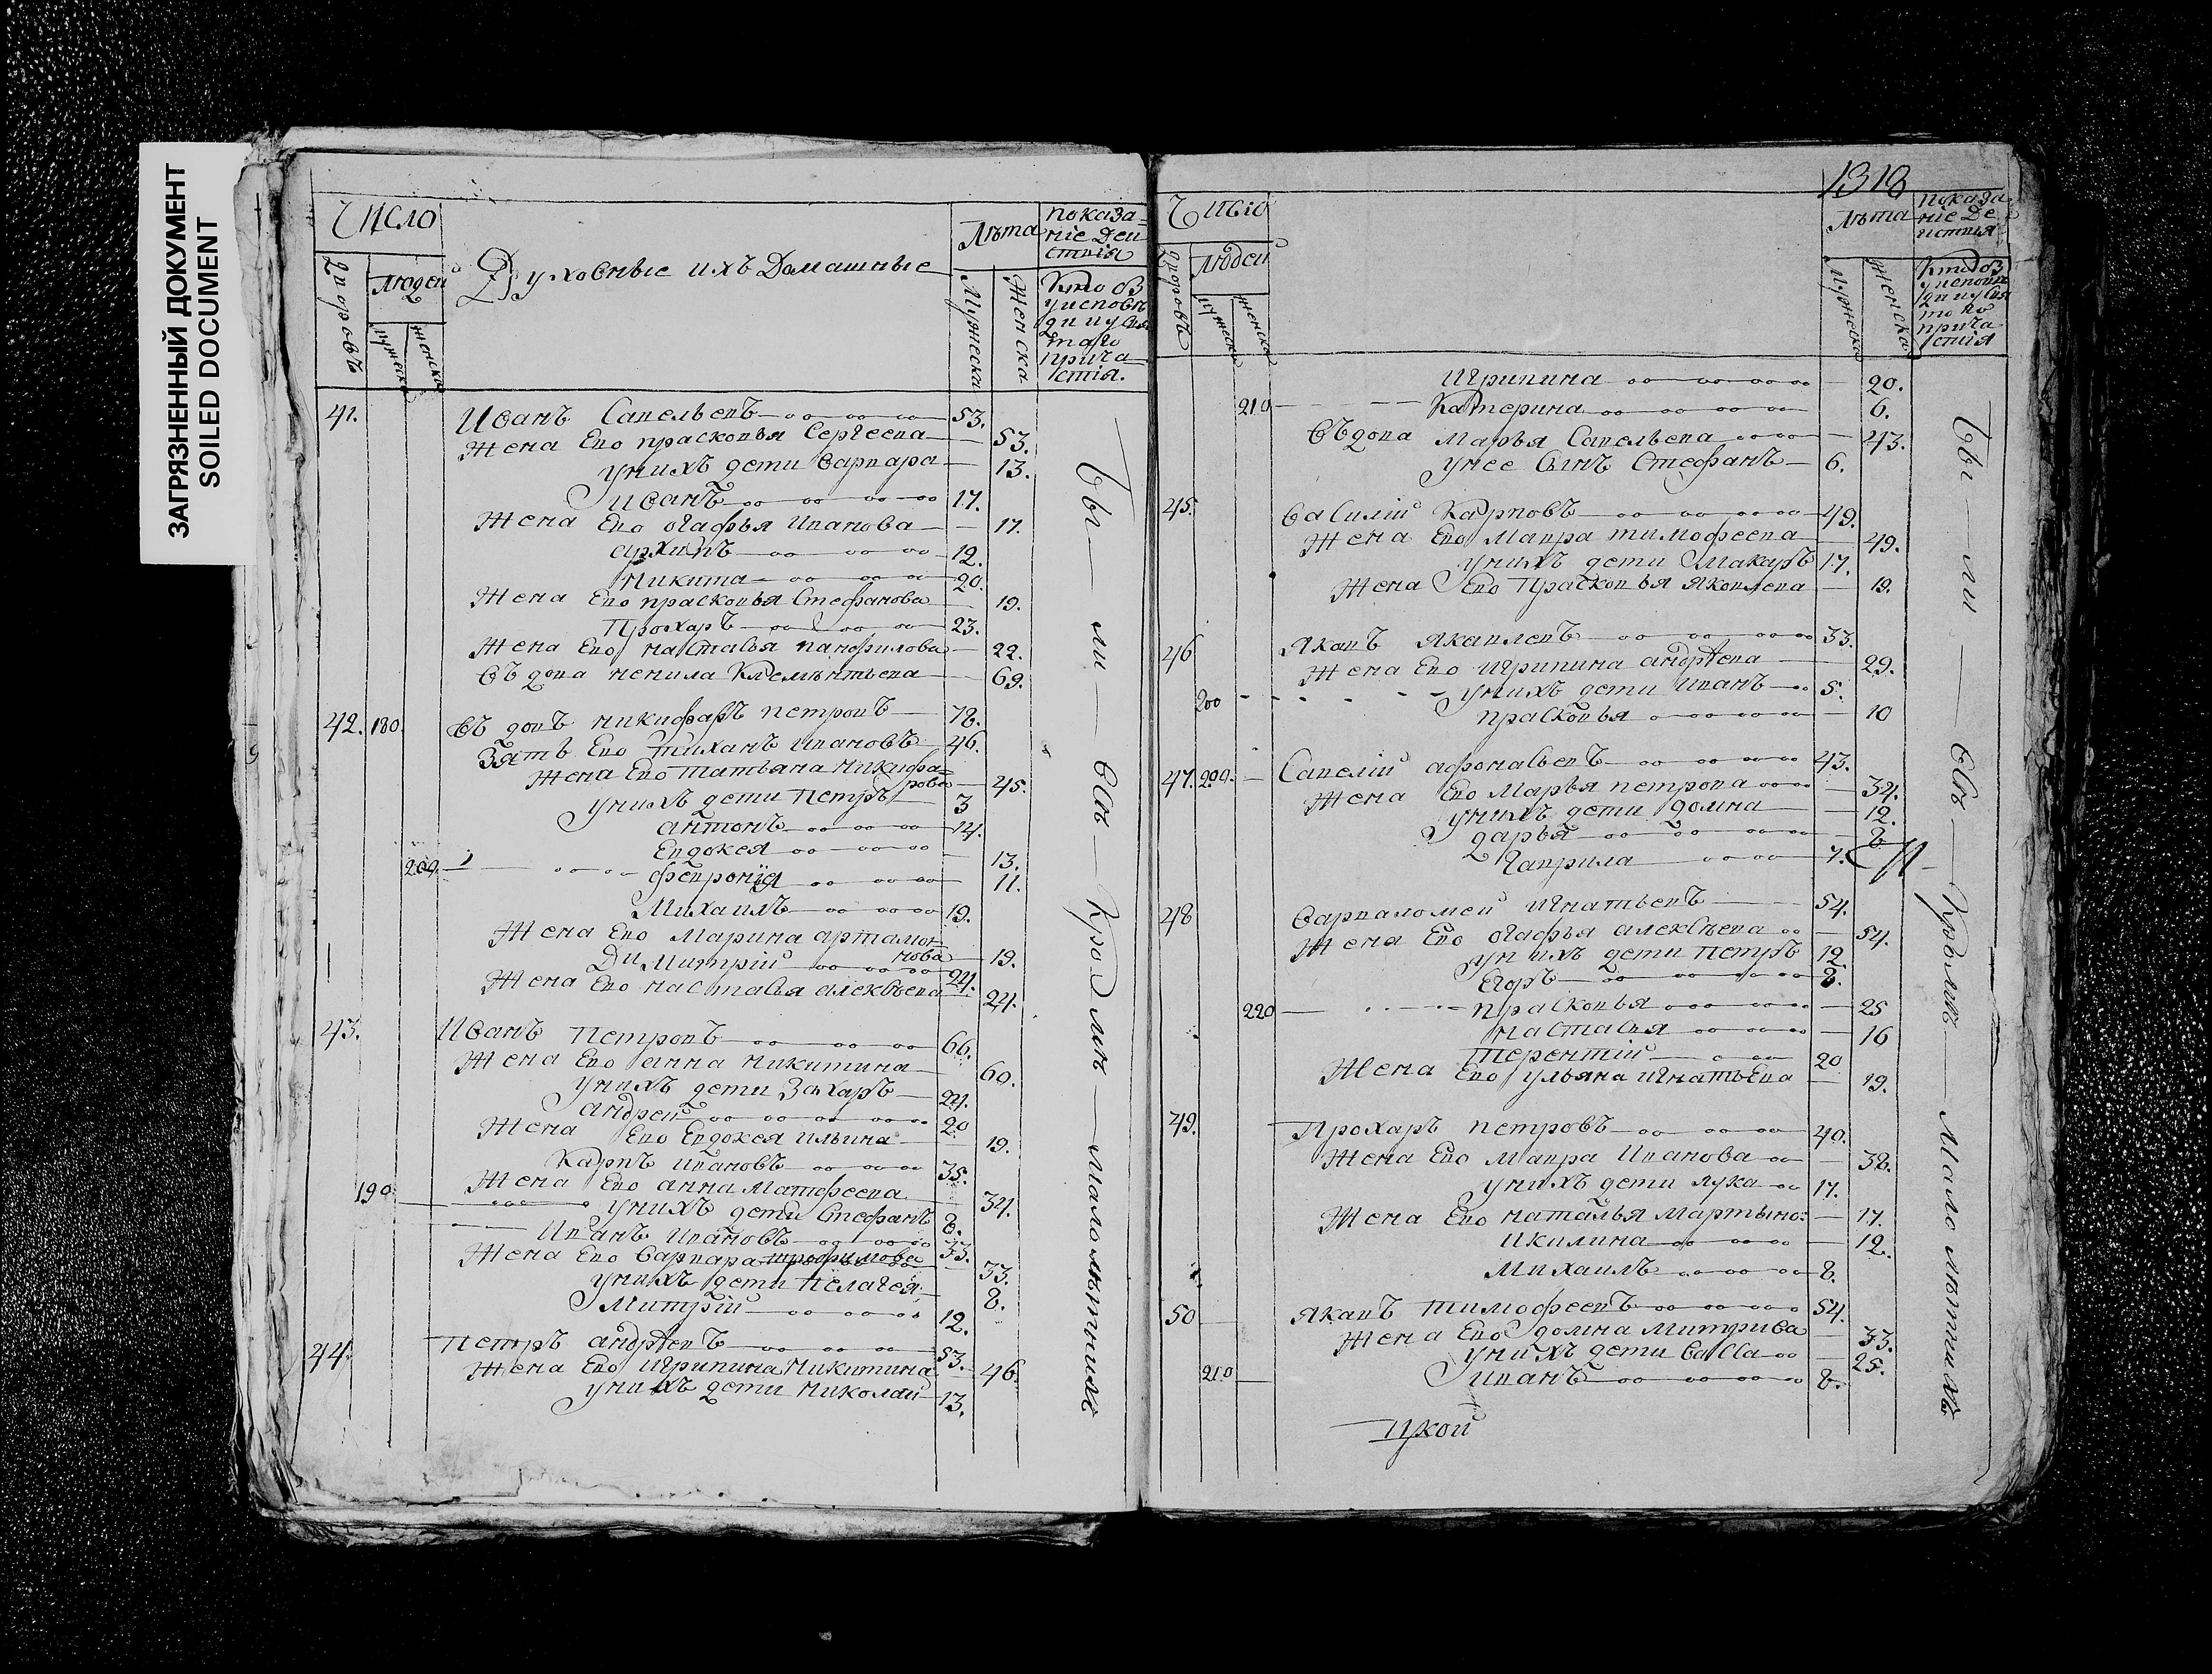 ЗАГРЯЗНЕННЫЙ ДОКУМЕНТ
SOILED DOCUMENT
Число
Дворовъ
Людей
Мужеска
Женска
Духовные ихъ Домашные
Лѣта
Мужеска
Женска
показа=
ніе Деи
ствія
Кто бӡ
у исповѣ
ди и у свя
таго
прича
стія.
41. Иванъ Савельевъ 53.
Жена Ево прасковья Сергеева 53.
у нихъ дети варвара 13.
иванъ 17.
Жена Ево огафья Иванова 17.
архипъ 12.
Никита 20.
Жена Ево прасковья Стефанова 19.
Прохаръ 23.
Жена Ево настасья панфилова 22.
Въдова ненила Клементьева 69.
42. 180. Въдовъ никифаръ петровъ 78.
Зять Ево тиханъ ивановъ 46.
Жена Ево татьяна никифа=
рова 45.
у нихъ дети Петръ 3
антонъ 14.
Евдокея 13.
209. февронія 11.
Михаилъ 19.
Жена Ево Марина артамон
нова 19.
Димитрій 24.
Жена Ево настасья алексѣева 24.
43. Иванъ Петровъ 66.
Жена Ево анна никитина 60.
у нихъ дети Захаръ 24.
андрей 20
Жена Ево Евдокея ильина 19.
Карпъ ивановъ 35.
Жена Ево анна Матфеева 34.
190 у нихъ дети Стефанъ 8.
Иванъ Ивановъ 33.
Жена Ево Варвара трофимова 33.
у нихъ дети пелагея 8.
Митрій 12.
44. Петръ андрѣевъ 53.
Жена Ево игрипина Никитина 46.
у нихъ дети николай 13.
Бы — ли — всѣ — Кромѣ — малолѣтнихъ
1318
Число
дворовъ
Людей
Мужеска
Женска
Лѣта
Мужеска
Женска
показа
ніе Де
иствия
Кто бӡ
у исповѣ
ди и у свя
то го
прича
стія
Игрипина 20.
210 Катерина 6.
Въдова марья Савельева 43.
у нее сынъ Стефанъ 6.
45. Василій Карповъ 49.
Жена Ево Мавра тимофеева 49.
у нихъ дети Макаръ 17.
Жена Ево Прасковья яковлева 19.
46 Якавъ якавлевъ 33.
Жена Ево игрипина андрѣева 29.
200 у нихъ дети иванъ 5.
прасковья 10
47. 209. Савелій афонасьевъ 43.
Жена Ево Марья петрова 34.
у нихъ дети домна 12.
дарья 8
Гаврила 7.
48 Варваломей игнатьевъ 54.
Жена Ево огафья алексѣева 54.
у нихъ дети петръ 12
Егоръ 8.
220 прасковья 25
настасья 16
Терентій 20
Жена Ево ульяна игнатьева 19.
49. Прохаръ петровъ 40.
Жена Ево Мавра Иванова 38.
у нихъ дети лука 17.
Жена Ево наталья мартыно: 17.
икилина 12.
Михаилъ 8.
50 Якавъ тимофеевъ 54.
Жена Ево домна Митрива 33.
у нихъ дети васса 25.
210 иванъ 8.
Бы — ли — всѣ — Кромѣ — малолѣтнихъ